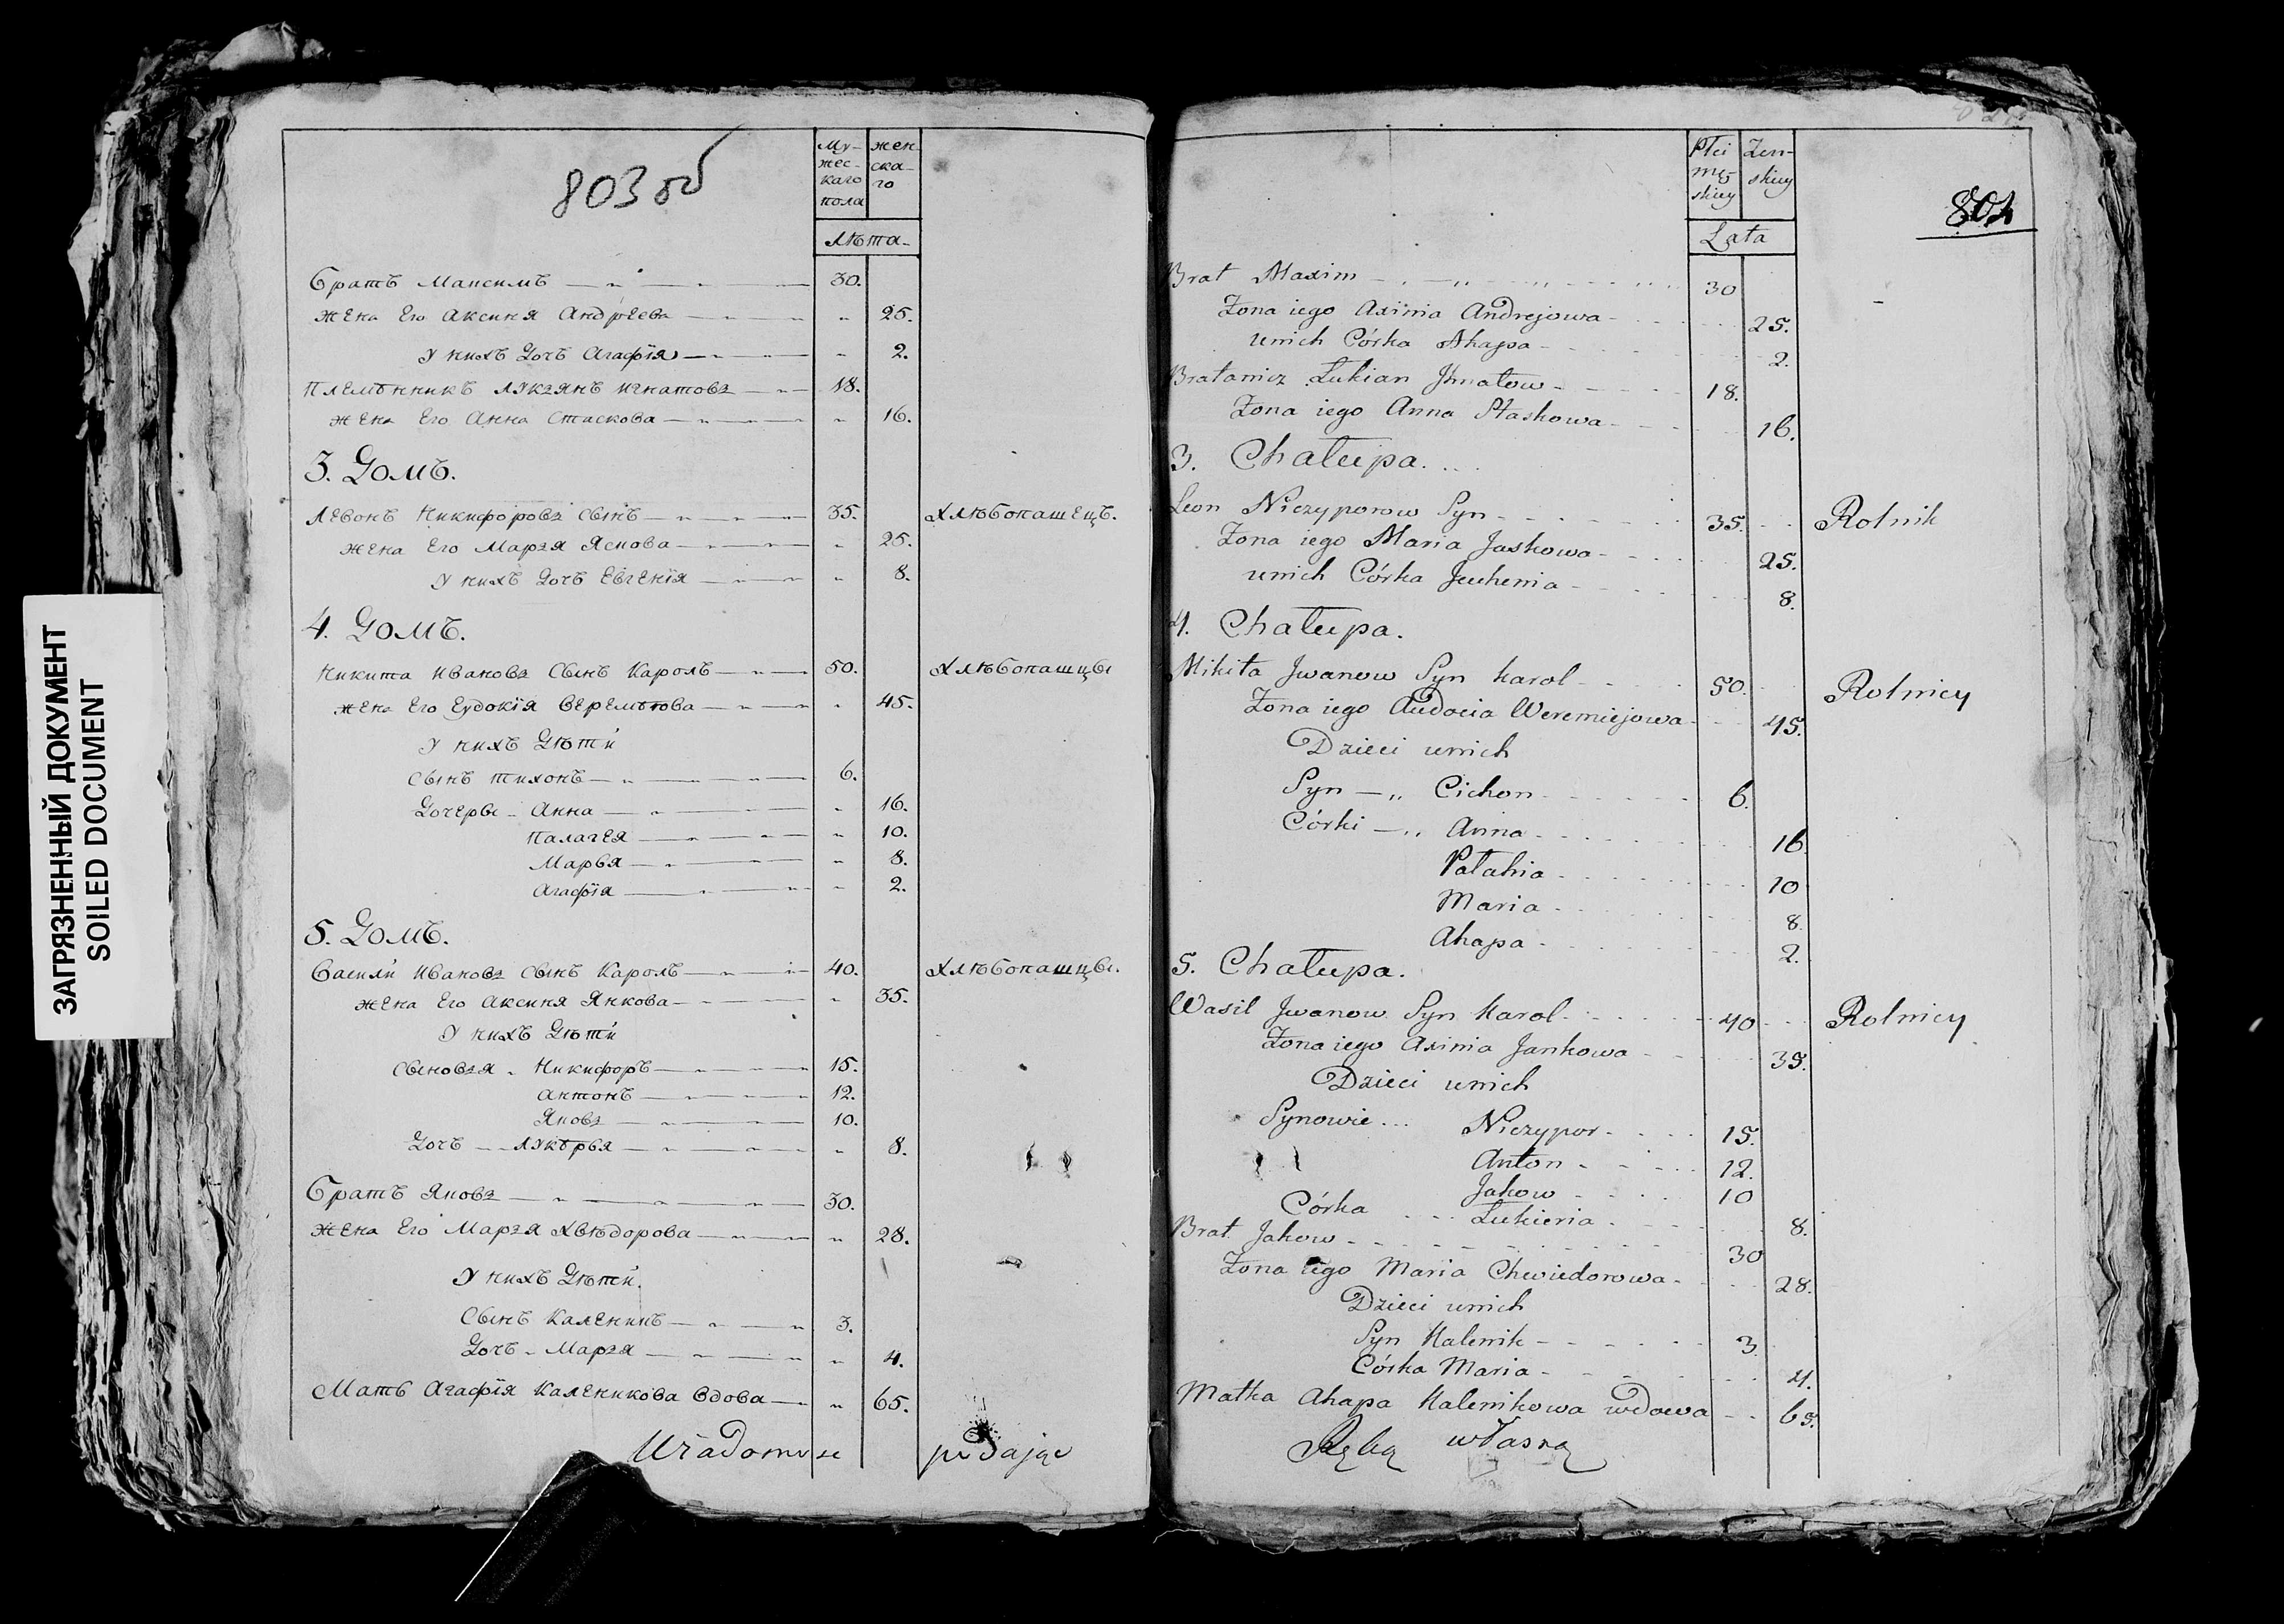 ЗАГРЯЗНЕННЫЙ ДОКУМЕНТ
SOILED DOCUMENT
803 об
Му-жес-каго пола
жен-ска-го
лѣта
Братъ Максимъ 30.
жена Его Аксиня Андрѣева 25.
У нихъ Дочь Агафїя 2.
Племѣнникъ Лукзянъ Игнатовз 18.
жена Его Анна Стаскова 16.
3. Домъ.
Левонъ Никифоровз Сынъ 35. Хлѣбопашецъ.
жена Его Марзя Яскова 25.
У нихъ Дочь Евгенїя 8.
4. Домъ.
Никита Ивановз Сынъ Кароль 50. Хлѣбопашцы
жена Его Еудокїя Веремѣева 45.
У нихъ Дѣти
Сынъ Тихонъ 6.
Дочеры Анна 16.
Палагея 10.
Марья 8.
Агафїя 2.
5. Домъ.
Василй Ивановз Сынъ Кароль 40. Хлѣбопашцы.
жена Его Аксиня Янкова 35.
У нихъ Дѣти
Сыновзя Никифоръ 15.
Антонъ 12.
Яковз 10.
Дочь Лукѣрья 8.
Братъ Яковз 30.
жена Его Марзя Хвѣдорова 28.
У нихъ Дѣти.
Сынъ Каленикъ 3.
Дочь Марзя 4.
Мать Агафїя Каленикова Вдова 65.
Wiadomość podając
804
Płci męskiey
Zenskiey
Lata
Brat Maxim 30
Zona iego Axinia Andrejowa 25.
unich Córka Ahapa 2.
Bratanicz Łukian Jhnatow 18.
Zona iego Anna Staskowa 16.
3. Chałupa.
Leon Niczyporow Syn 35. Rolnik
Zona iego Maria Jaskowa 25.
unich Córka Jeuhenia 8.
4. Chałupa.
Mikita Jwanow Syn Karol 50. Rolnicy
Zona iego Audocia Weremiejowa 45.
Dzieci unich
Syn Cichon 6.
Córki Anna 16
Pałahia 10
Maria 8.
Ahapa 2.
5. Chałupa.
Wasil Jwanow Syn Karol 40 Rolnicy
Zona iego Axinia Jankowa 35.
Dzieci unich
Synowie Niczypor 15.
Anton 12.
Jakow 10
Córka Łukieria 8.
Brat Jakow 30
Zona iego Maria Chwiedorowa 28.
Dzieci unich
Syn Kalenik 3.
Córka Maria 4.
Matka Ahapa Kalenikowa wdowa 65.
Ręką własną